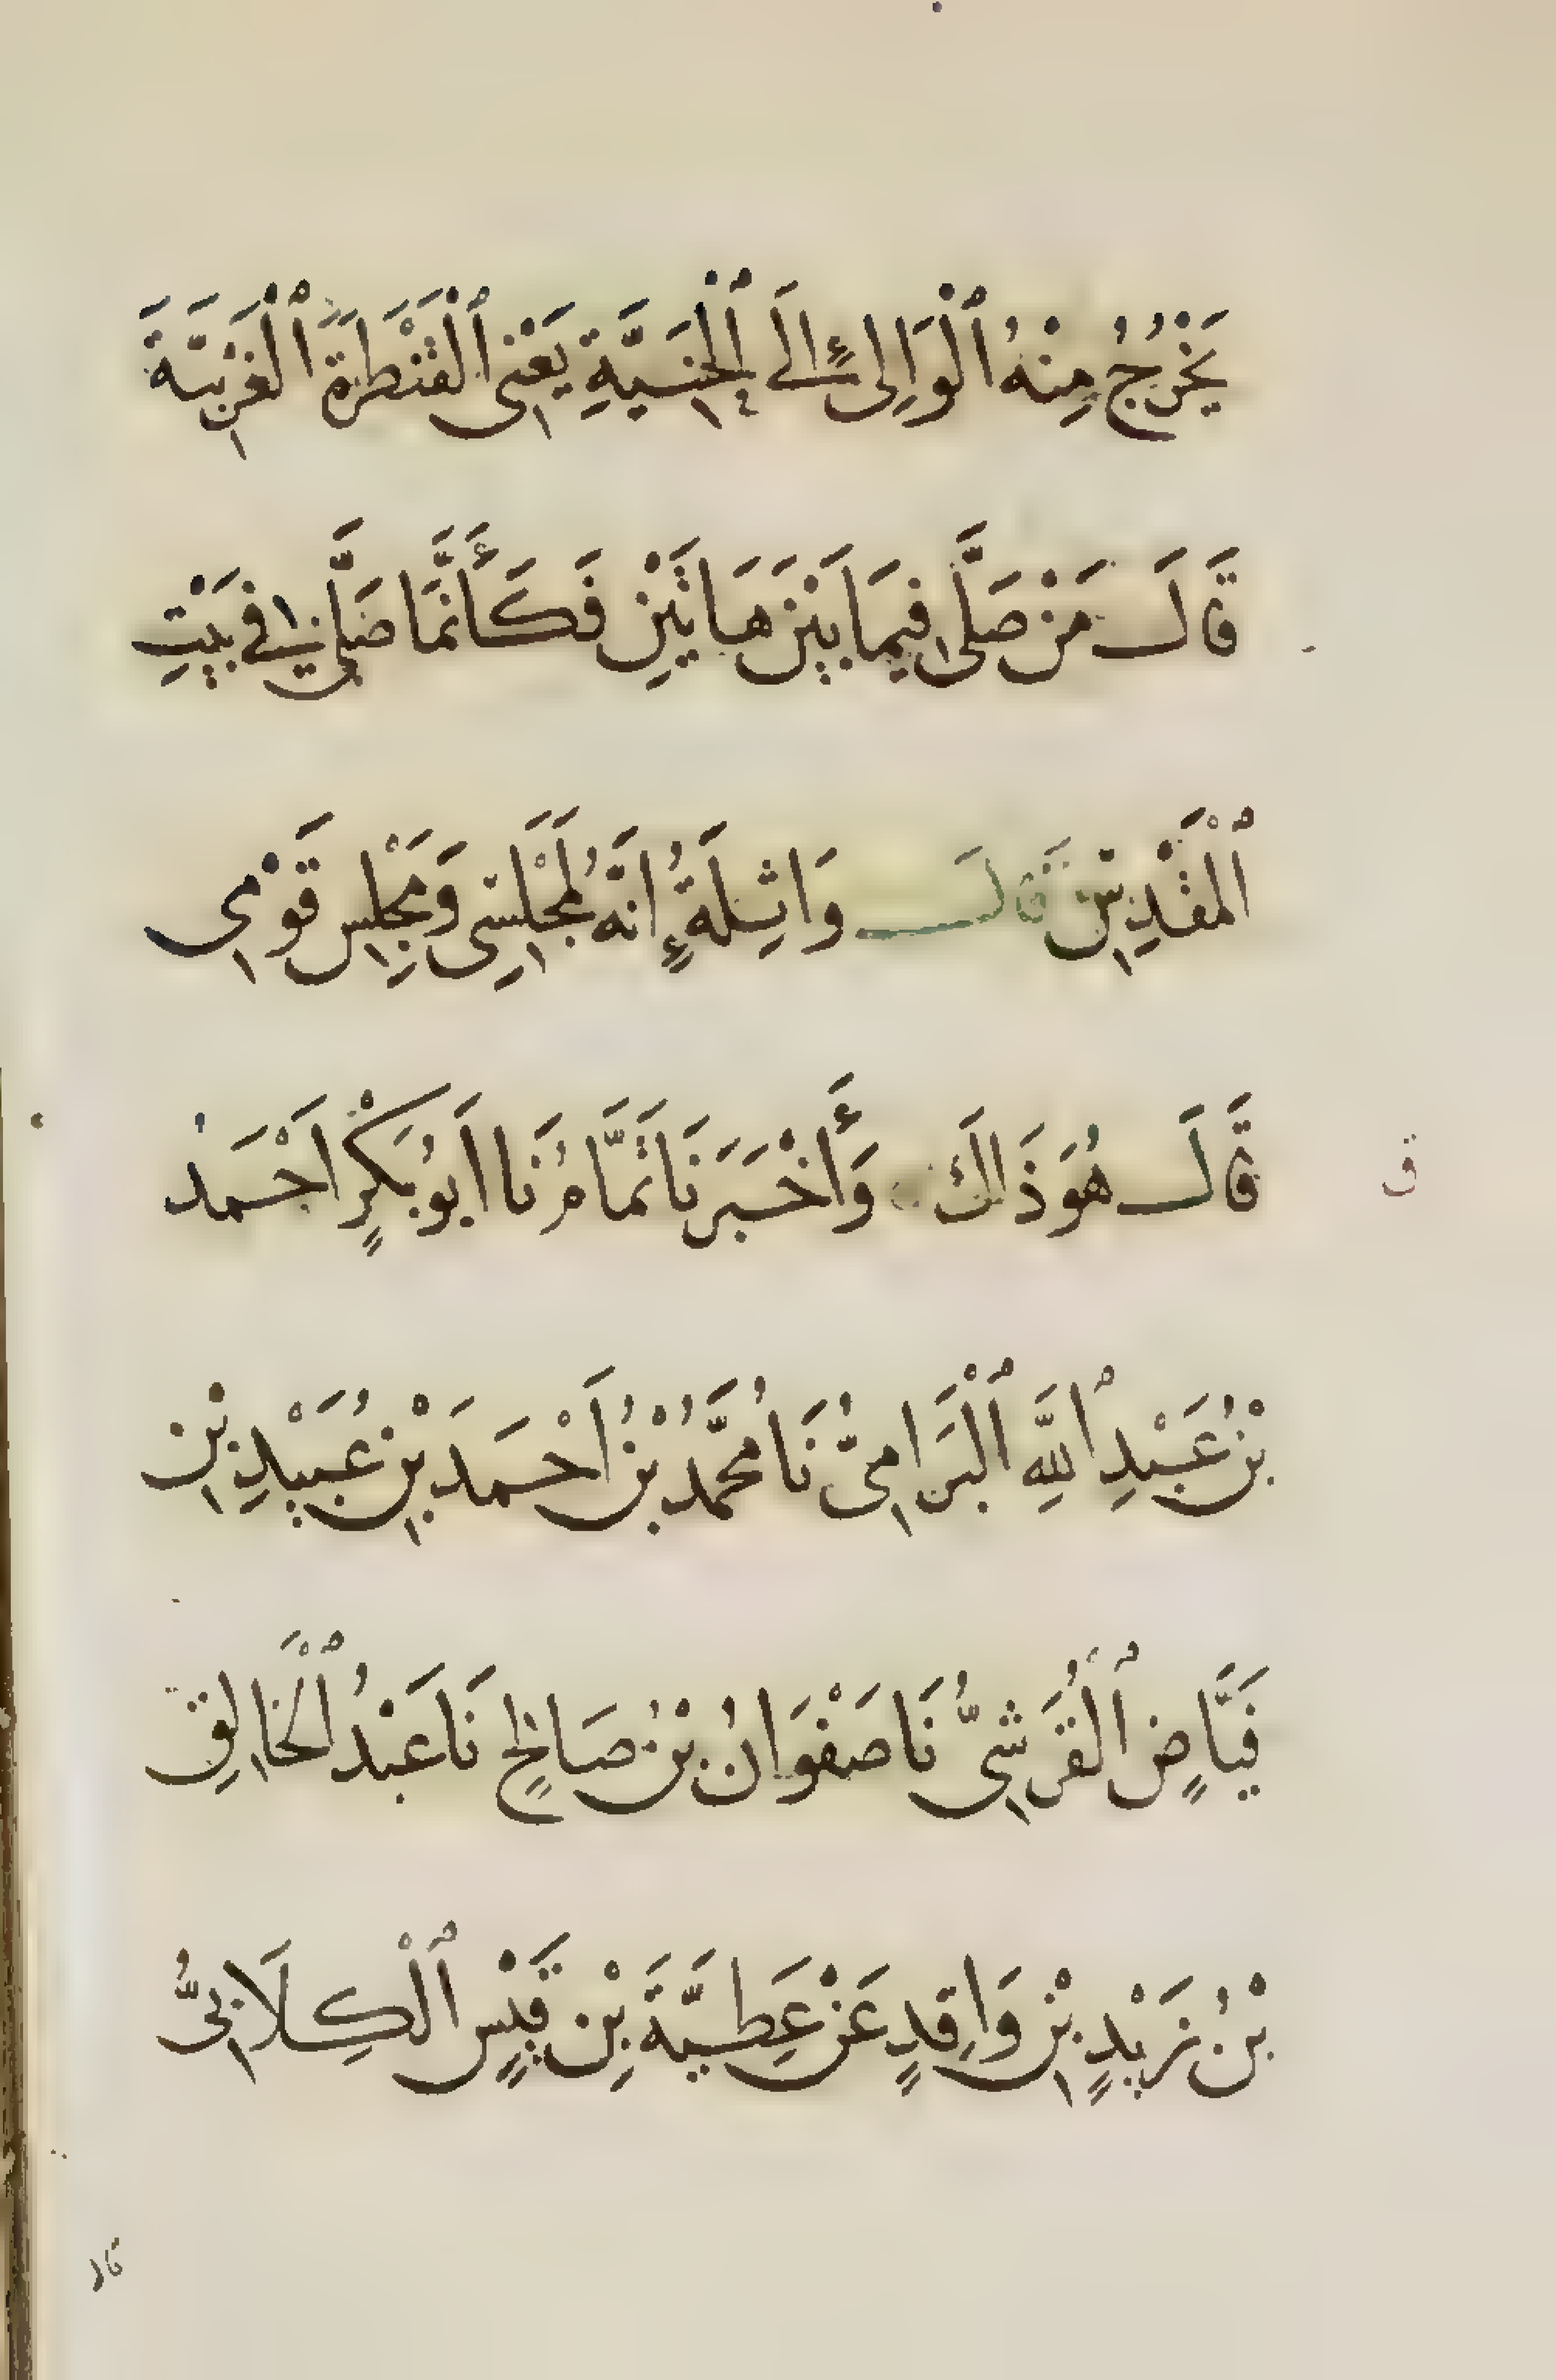 يَخْرُجُ مِنْهُ ٱلْوَالِى إِلَى ٱلْحَنِيَّةِ يَعْنِى ٱلْقَنْطَرَةَ ٱلْغَرْبِيَّةَ
قَالَ مَنْ صَلَّى فِيمَا بَيْنَ هَاتَيْنِ فَكَأَنَّمَا صَلَّى فِى بَيْتِ
ٱلْمَقْدِسِ فَقَالَ وَاثِلَةُ إِنَّهُ لَمَجْلِسِى وَمَجْلِسُ قَوْمِى
قَالَ هُوَ ذَاكَ وَأَخْبَرَنَا تَمَّامُ نَا اَبُو بَكْرٍ اَحْمَدُ
بْنُ عَبْدِ ٱللَّهِ ٱلْبَرَامِىُّ نَا مُحَمَّدُ بْنُ اَحْمَدَ بْنِ عُبَيْدِ بْنِ
فَيَّاضٍ ٱلْقُرَشِىُّ نَا صَفْوَانُ بْنُ صَالِحٍ نَا عَبْدُ ٱلْخَالِقِ
بْنُ زَيْدِ بْنِ وَاقِدٍ عَنْ عَطِيَّةَ بْنِ قَيْسٍ ٱلْكِلَابِىُّ
قال
ق